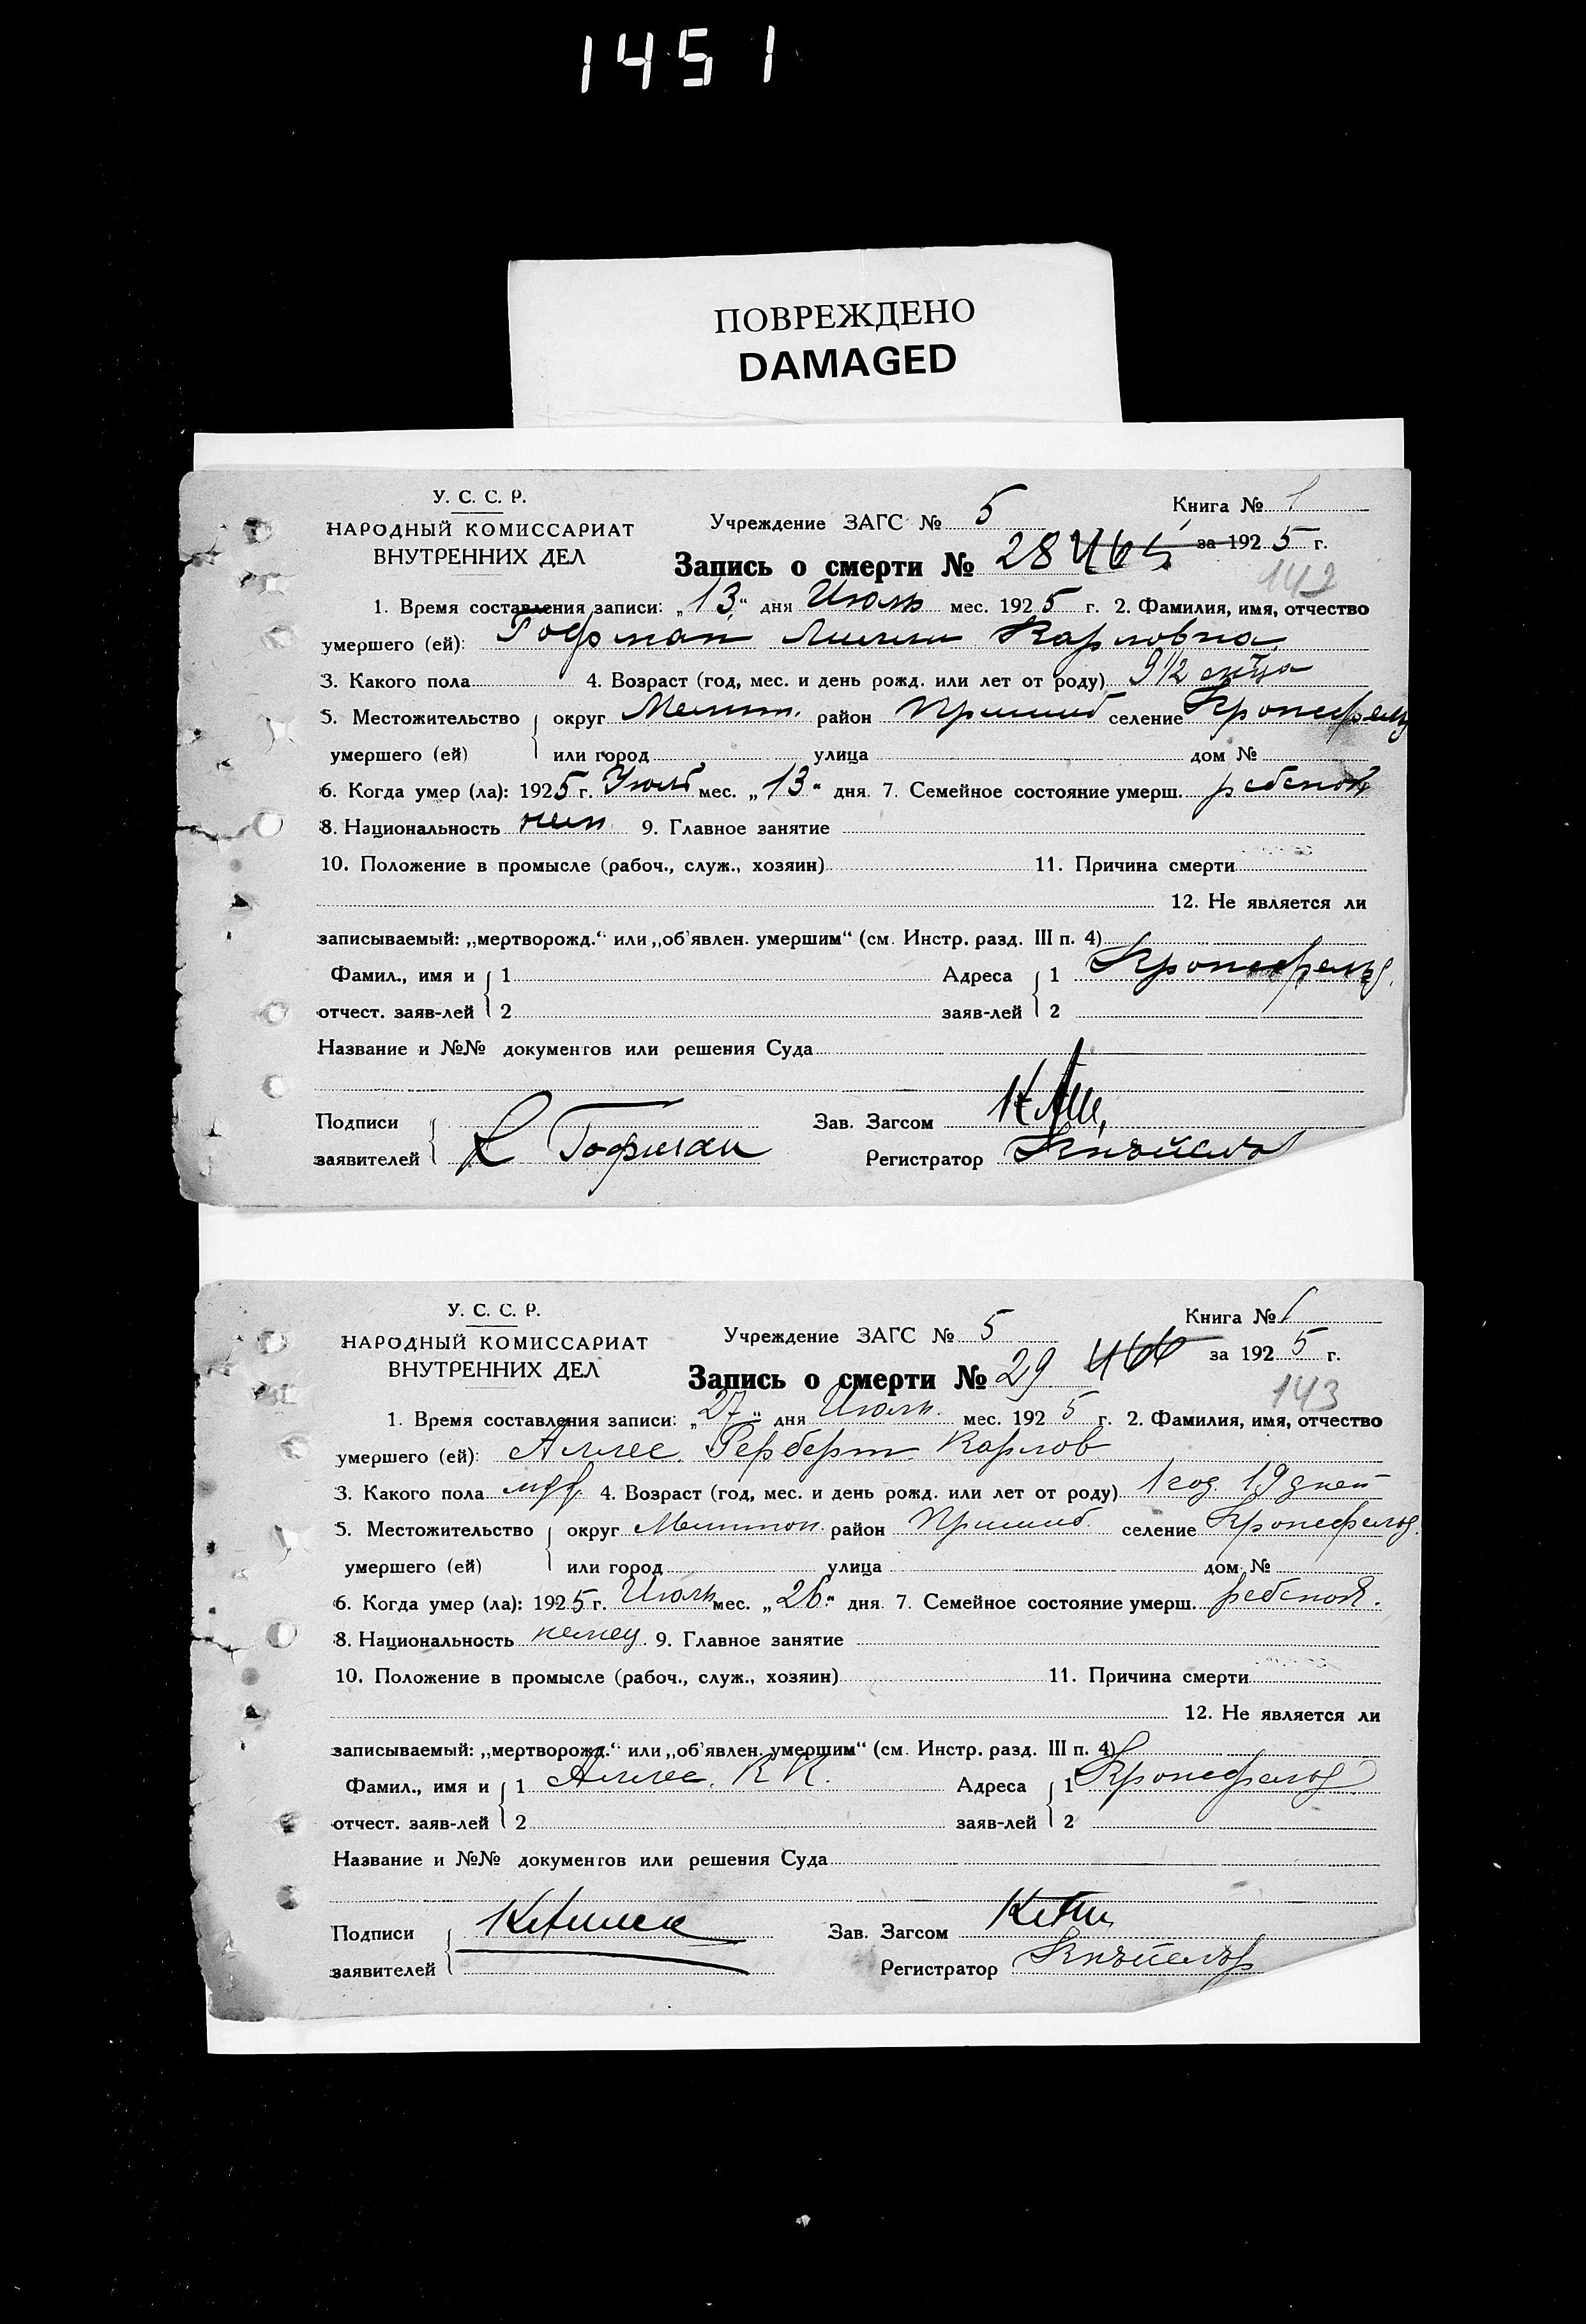 1451
ПОВРЕЖДЕНО
DAMAGED
У. С. С. Р.
НАРОДНЫЙ КОМИССАРИАТ
ВНУТРЕННИХ ДЕЛ
Учреждение ЗАГС № 5
Книга № 1
Запись о смерти № 28 465 за 1925 г.
142
1. Время составления записи: „13“ дня Июль мес. 1925 г. 2. Фамилия, имя, отчество
умершего (ей): Гофман Карловна
3. Какого пола 4. Возраст (год, мес. и день рожд. или лет от роду) 9 1/2 м-ца
5. Местожительство округ Мелит. район Пришиб селение Кронсфельд
умершего (ей) или город улица дом №
6. Когда умер (ла): 1925 г. Июль мес. „13“ дня. 7. Семейное состояние умерш. ребенок
8. Национальность нем 9. Главное занятие
10. Положение в промысле (рабоч., служ., хозяин) 11. Причина смерти
12. Не является ли
записываемый: „мертворожд.“ или „об'явлен. умершим“ (см. Инстр. разд. III п. 4)
Фамил., имя и 1 Адреса 1 Кронсфельд.
отчест. заяв-лей 2 заяв-лей 2
Название и №№ документов или решения Суда
Подписи Зав. Загсом
заявителей К Гофман Регистратор
У. С. С. Р.
НАРОДНЫЙ КОМИССАРИАТ
ВНУТРЕННИХ ДЕЛ
Учреждение ЗАГС № 5
Книга № 1
Запись о смерти № 29 466 за 1925 г.
143
1. Время составления записи: „27“ дня Июль мес. 1925 г. 2. Фамилия, имя, отчество
умершего (ей): Герберт Карлов
3. Какого пола 4. Возраст (год, мес. и день рожд. или лет от роду) 1 год 19 дней
5. Местожительство округ Мелитоп. район Пришиб. селение Кронсфельд.
умершего (ей) или город улица дом №
6. Когда умер (ла): 1925 г. Июль мес. „26“ дня. 7. Семейное состояние умерш. ребенок.
8. Национальность немец. 9. Главное занятие
10. Положение в промысле (рабоч., служ., хозяин) 11. Причина смерти
12. Не является ли
записываемый: „мертворожд.“ или „об'явлен. умершим“ (см. Инстр. разд. III п. 4)
Фамил., имя и 1 К К. Адреса 1 Кронсфельд
отчест. заяв-лей 2 заяв-лей 2
Название и №№ документов или решения Суда
Подписи Зав. Загсом
заявителей Регистратор